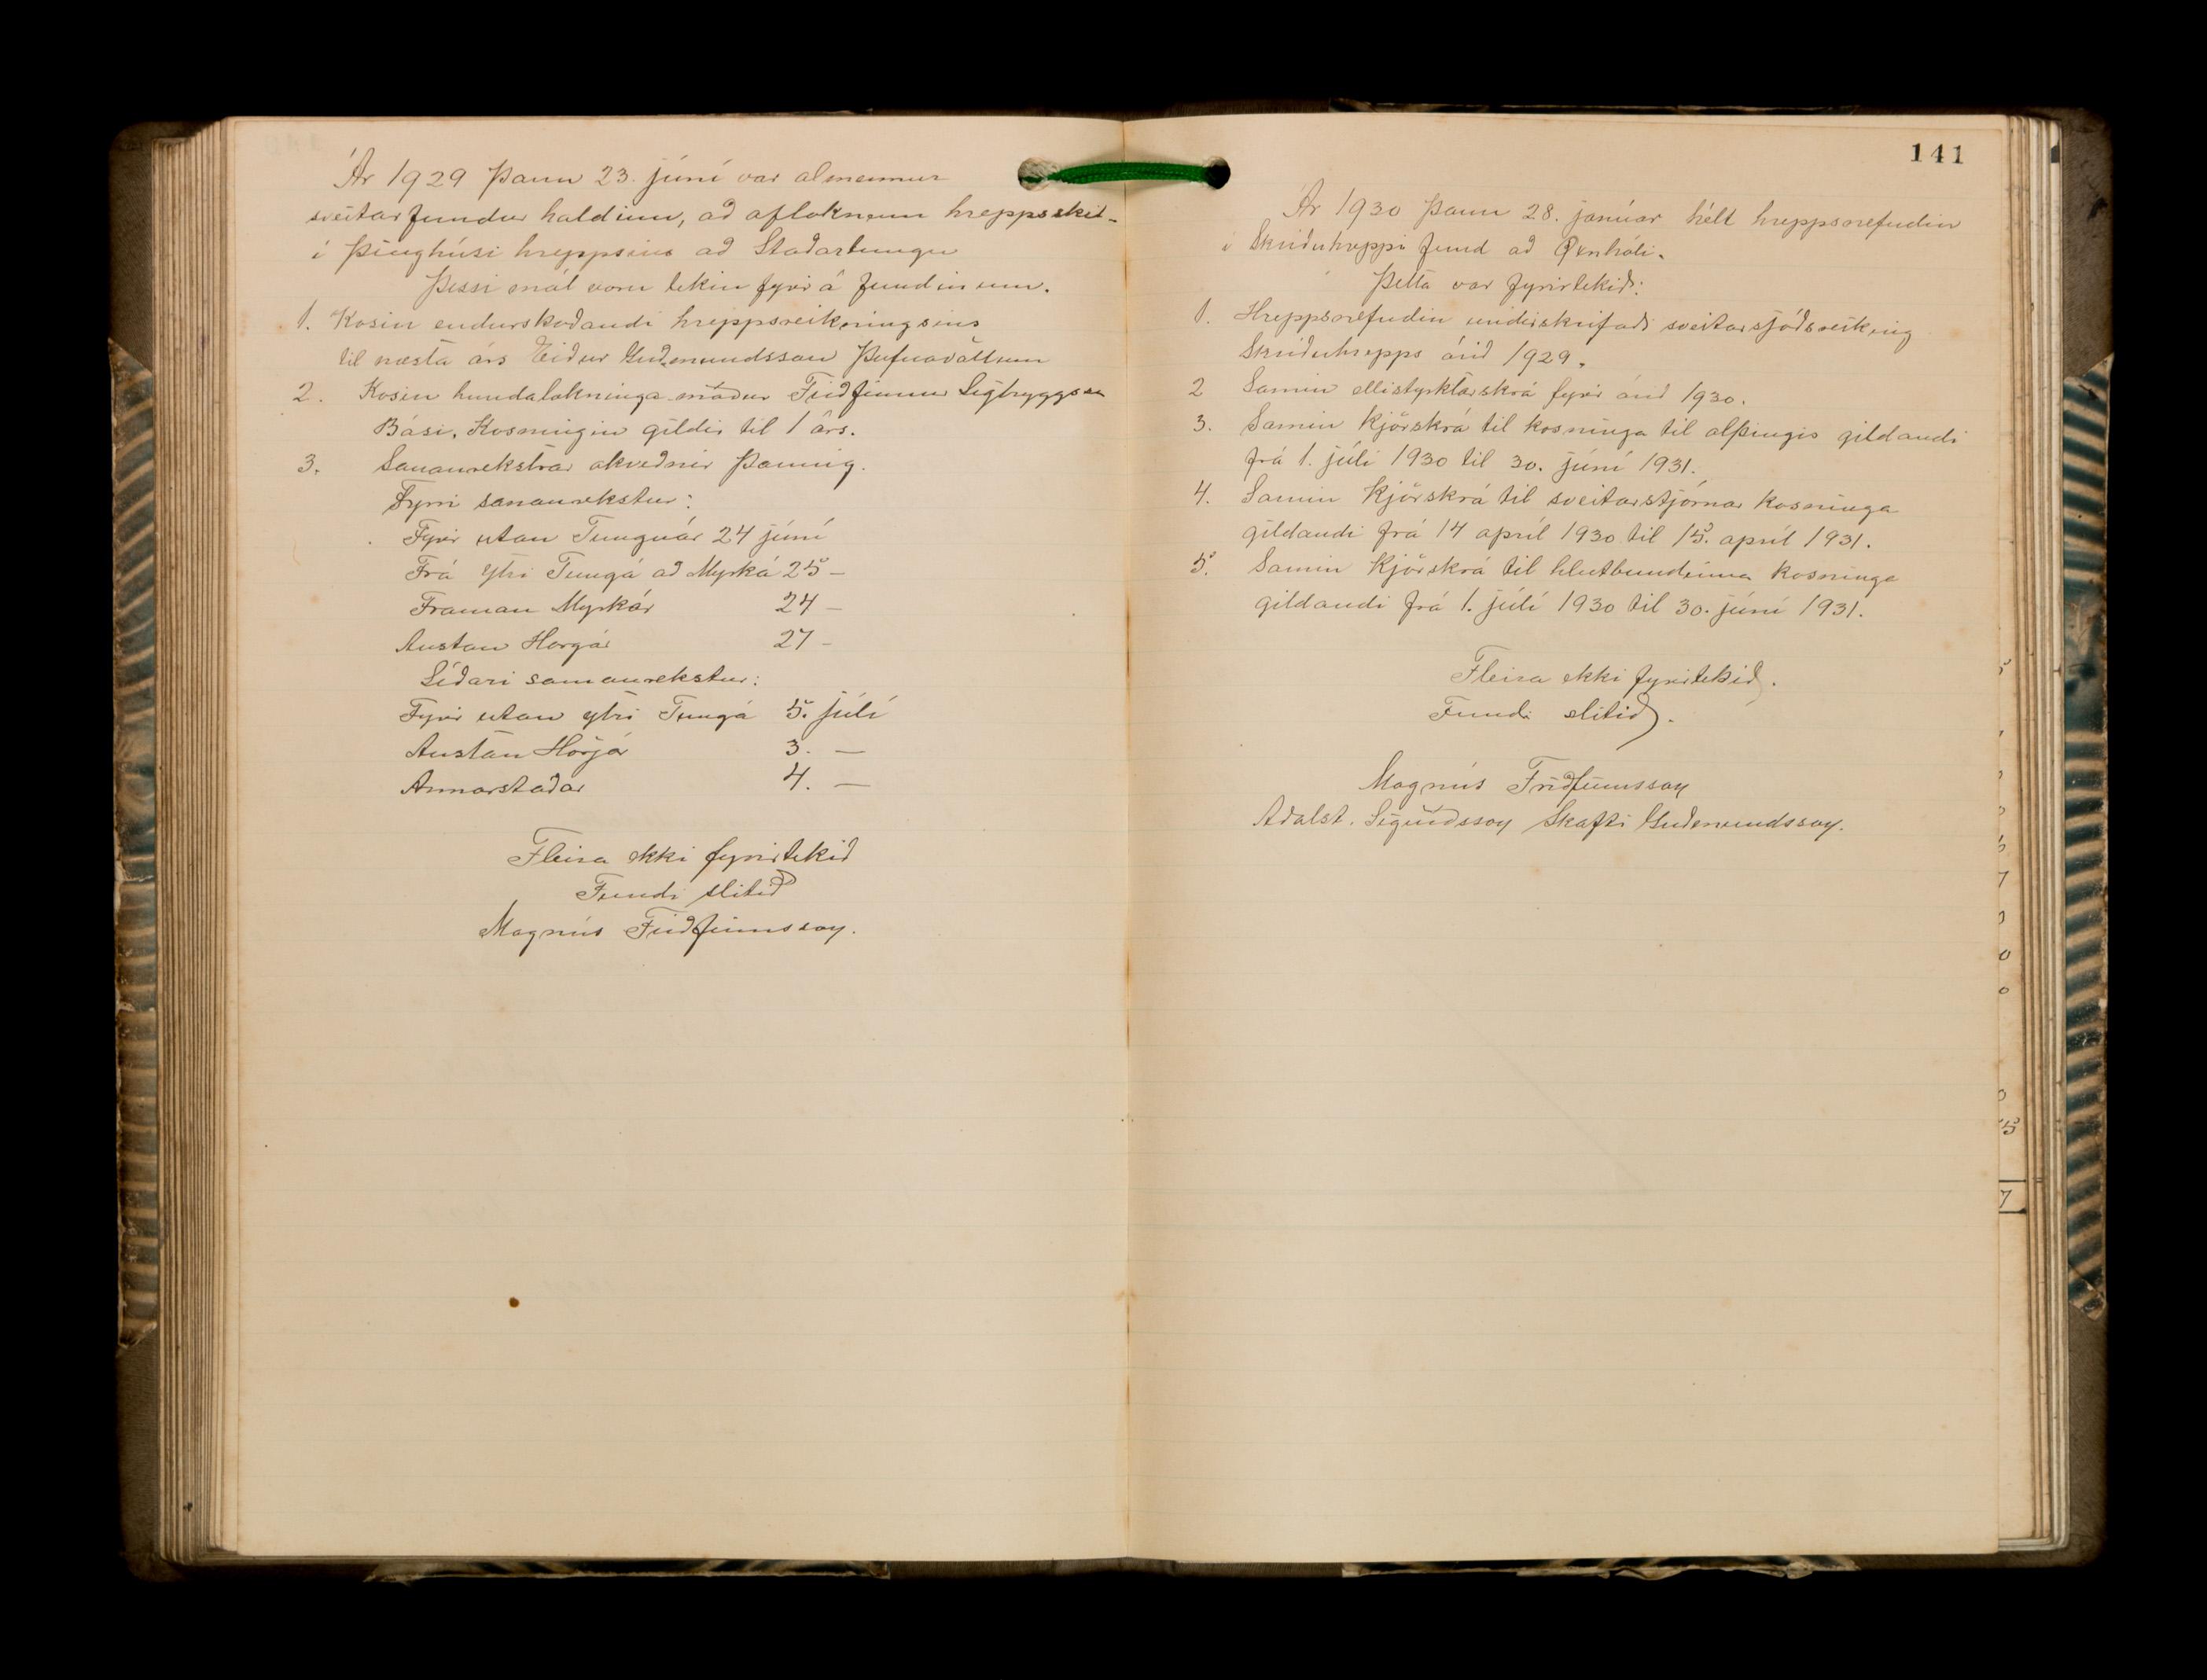 Ár 1929 þann 23. júní var almennur
sveitarfundur haldinn, að afloknum hreppsskil-
í þinghúsi hreppsins að Staðartungu
Þessi mál voru tekin fyrir á fundinum.
1. Kosin endurskoðandi hreppsreikningsins
til næsta árs Eiður Guðmundsson Þúfnavöllum
2. Kosin hundalækninga maður Friðfinnur Sigtryggsson
Bási. Kosningin gildir til 1 árs.
3. Samanrekstrar akveðnir þannig.
Fyrri samanrekstur:
Fyrir utan Tunguár 24 júní
Frá ytri Tungá að Myrká 25 –
Framan Myrkár 24 –
Austan Horgár 27 –
Síðari samanrekstur:
Fyrir utan ytri Tungá 5. júlí
Austan Hörgár 3. —
Annarstaðar 4. —
Fleira ekki fyrirtekið
Fundi slitið
Magnús Friðfinnsson.
141
Ár 1930 þann 28. janúar hélt hreppsnefndin
í Skriðuhreppi fund að Öxnhóli.
Þetta var fyrirtekið:
1. Hreppsnefndin undirskrifaði sveitarsjóðsreiking
Skriðuhrepps árið 1929.
2 Samin ellistyrktarskrá fyrir árið 1930.
3. Samin kjörskrá til kosninga til alþingis gildandi
frá 1. júli 1930 til 30. júní 1931.
4. Samin Kjörskrá til sveitarstjórnar kosninga
gildandi frá 14 apríl 1930 til 15. apríl 1931.
5. Samin Kjörskrá til hlutbundinna kosninga
gildandi frá 1. júlí 1930 til 30. júní 1931.
Fleira ekki fyrirtekið.
Fundi slitið.
Magnús Friðfinnsson
Aðalst. Sigurðsson Skafti Guðmundsson.